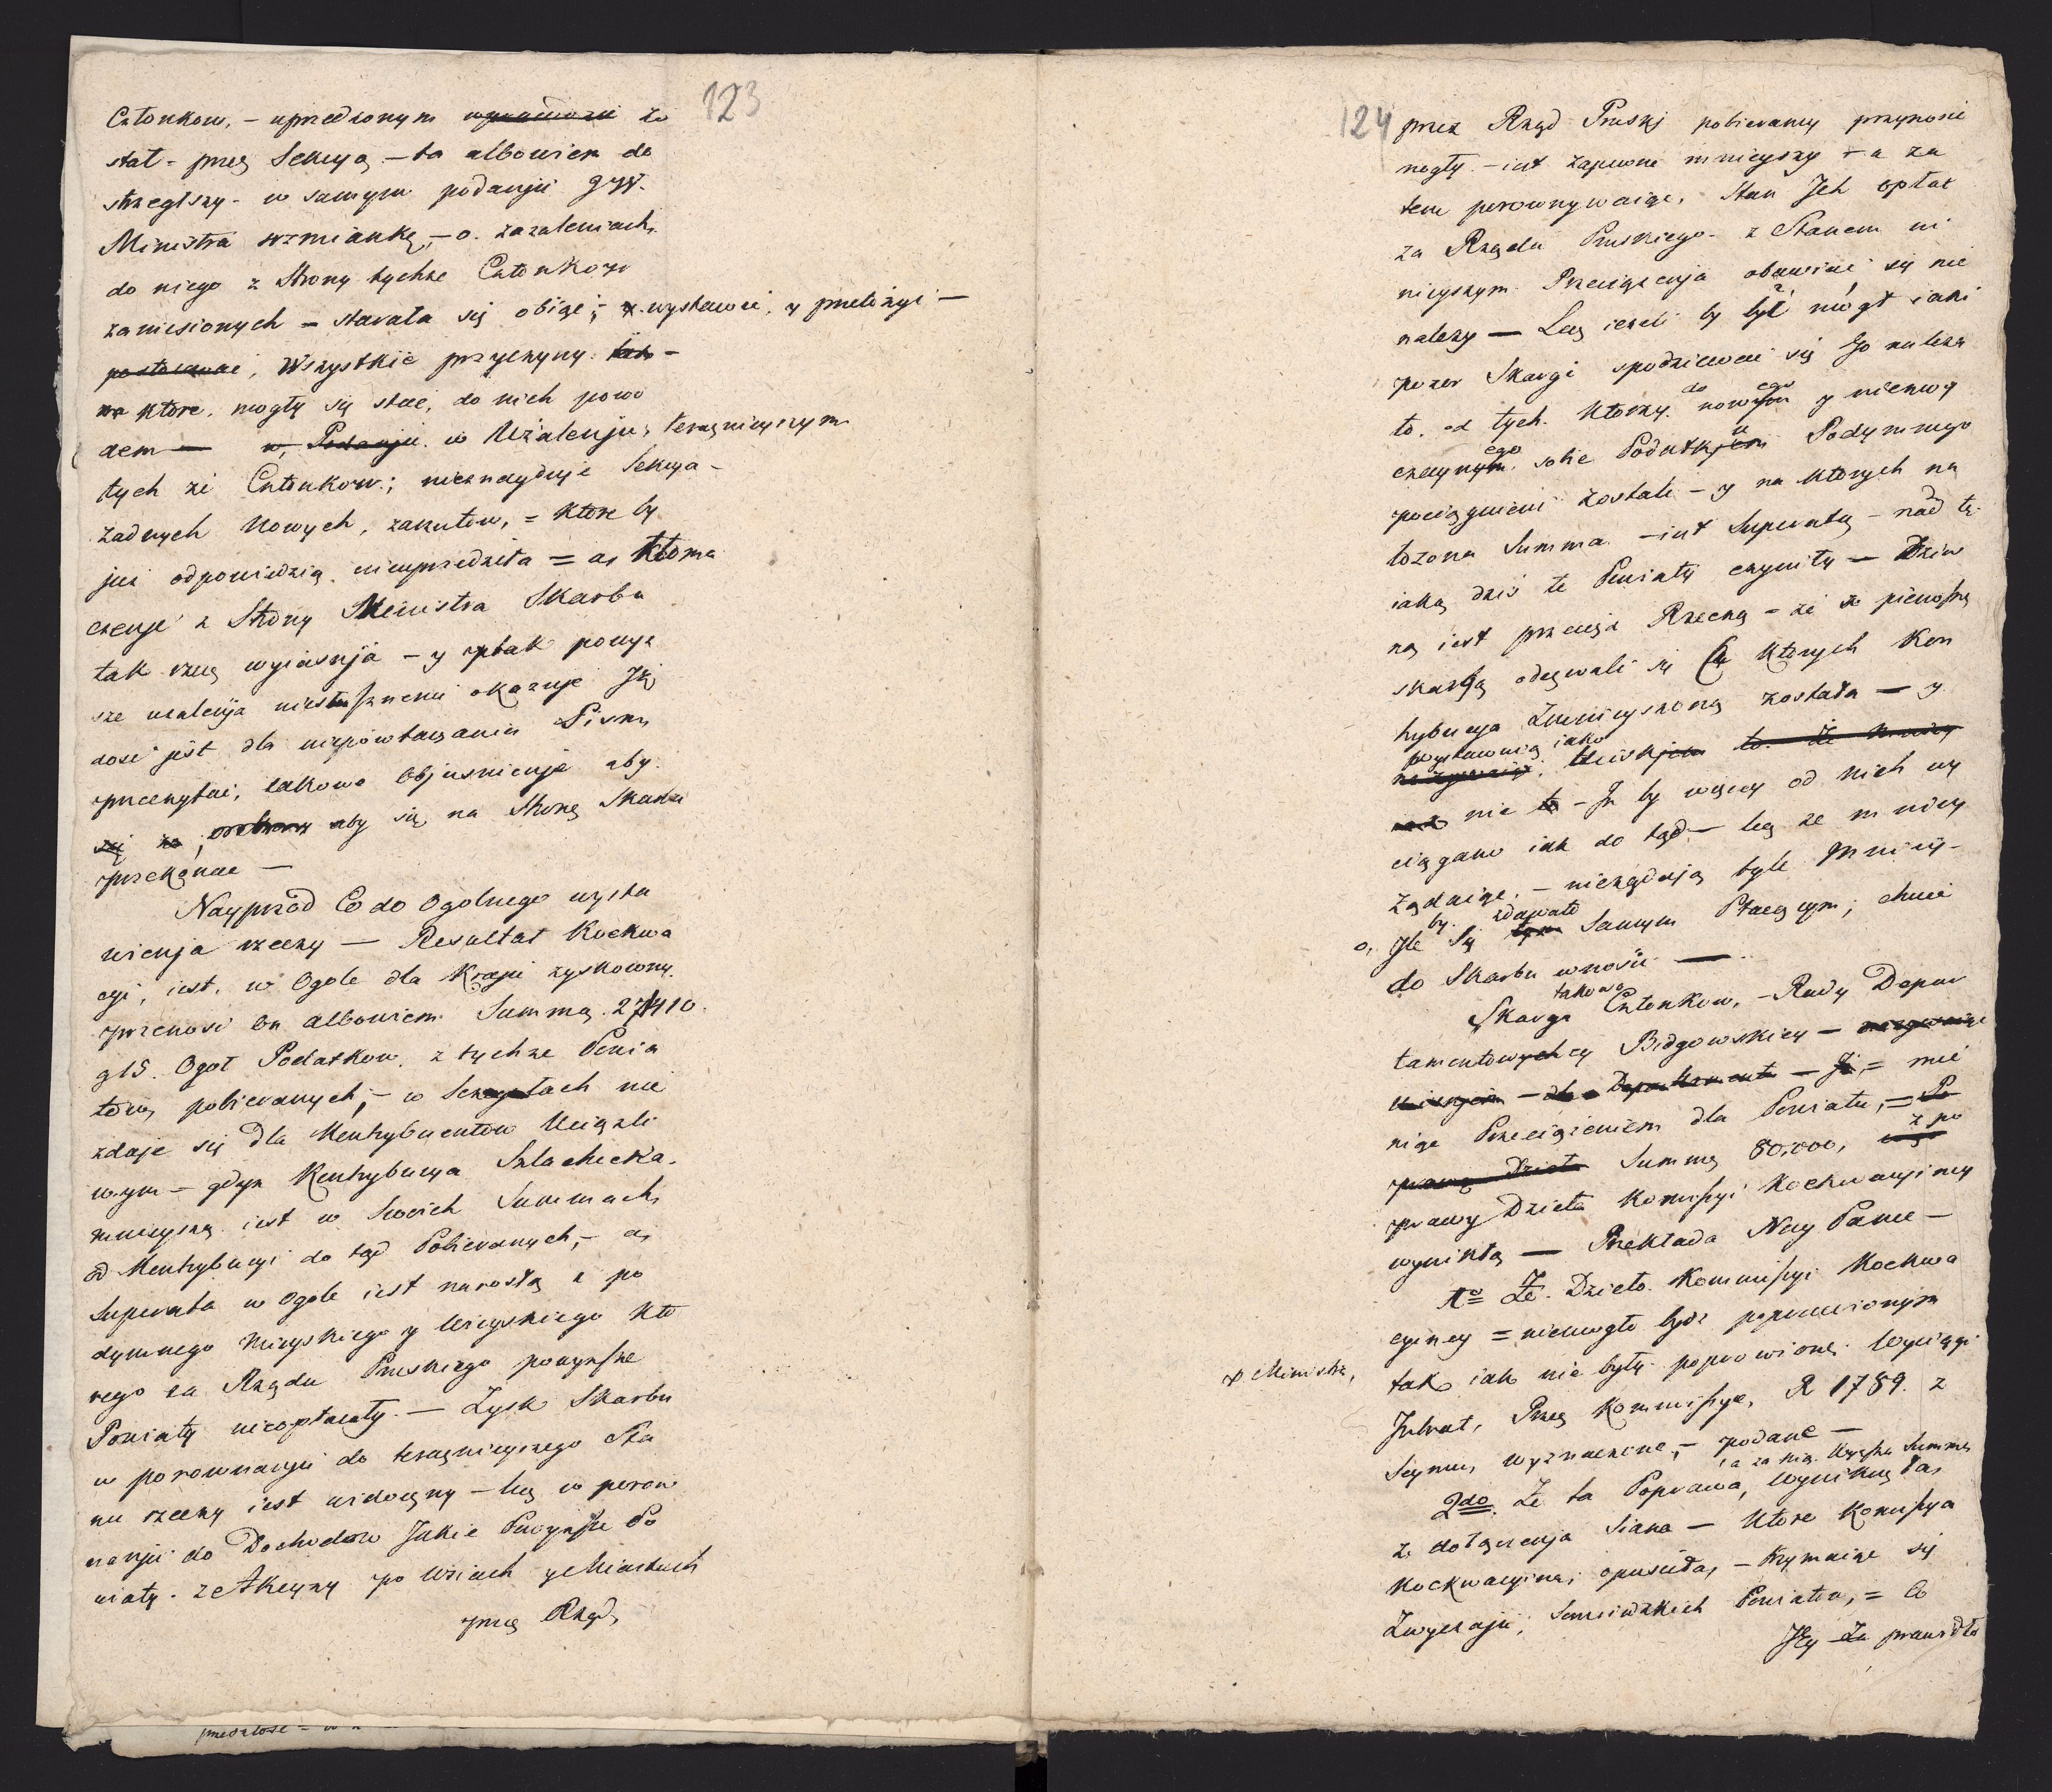 123
Członkow, – uprzedzonym zo
stał – przez Sekcyą – ta albowiem do
strzegłszy – w samym podanju gdyż
Ministra wzmiankę, – o zazaleniach,
do niego z Strony tychże Członkow
zaniesionych – starała się obięć; wystawić, y przełożyć –
Wszystkie przyczyny
ktore, mogły się stać, do nich powo
dem — w Użalenju, teraznieyszym
tych że Członkow; nieznayduje Sekcya –
żadnych Nowych, zarzutow, = ktore by
już odpowiedzią nieuprzedziła = a,
czenje z Strony Ministra Skarbu
tak rzecz wyiasnja – y powyz
sze uzalenja niesłusznemi okazuje
dość jest dla niepowtarzania Pisma
przeczytać, takowe Objasnienje aby
aby się na Stronę Skarbu
przekonać —
Nayprzod Co do Ogolnego wysta
wienja rzeczy — Resultat Kockwa
cyi, iest, w Ogole dla Kraju zyskowny.
przenosi on albowiem Summą 27410.
g 15. Ogoł Podatkow, z tychze Powia
tow, pobieranych; – w Sczegułach nie
zdaje się dla Kontrybuentow Uciązli
wym – gdyz Kontrybucya Szlachecka,
mnieyszą iest w Swoich Summach,
od Kontrybucyi do tąd Pobieranych, – a,
Superata w ogole iest narosłą z po
dymnego Mieyskiego y Wieyskiego Kto
rego za Rządu Pruskiego powyzsze
Powiaty nieopłacały. — Zysk Skarbu
w porownanju do teraznieyszego Sta
nu rzeczy iest widoczny – lecz w porow
nanju do Dochodow Jakie Powyzsze Po
wiaty z Akcyzy po Wsiach y Miastach
przez Rząd,
124
przez Rząd Pruski pobieraney przynosić
mogły – iest zapewne mnieyszy – a za
tem porownywaiąc, Stan Jch opłat
za Rządu Pruskiego – z Stanem ni
nieyszym Przeciązenja obawiać się nie
nalezy — Lecz iezeli by był mogł iaki
pozor Skargi spodziewać się Go nalezy
to od tych Ktorzy do nowego y niezwy
czaynego sobie Podatku Podymnego
pociągnieni zostali – y na ktorych na
łozona Summa – iest Superatą – nad tę
iaką dziś te Powiaty czyniły — Dziw
ną iest przecięż Rzeczą – że z pierwszą
skargą odezwali się Ci Ktorych Kon
trybucya Zmnieyszoną została — y
wystawuią iako Uciskjem
nie – Ze by więcey od nich wy
ciągano iak do tąd – lecz ze mniey
Ządaiąc. – nieżądają tyle Mniey –
o, Jle by się zdawało Samym Płacącym; chcieć
do Skarbu wnosić —
Skarga takowa Członkow, – Rady Depar
tamentowey Bydgowskiey —
= mie
niąc Przeciązeniem dla Powiatu, =
Summę 80,000, z po
prawy Dzieła Kommissyi Kockwacyiney
wynikłą — Przekłada Nay Panie —
1º Ze Dzieło Kommissyi Kockwa
cyiney = niemogło bydź poprawionym
tak iak nie były poprawione Wyciągi
x Ministra,
Jntrat, Przez Kommissye, R 1789. z
Seymu, wyznaczone, – podane –
2do Ze ta Poprawa, a za nią Wyższa Summa wyniknęła,
z dołączenja Siana — Ktore Komissya
Kockwacyina, opuściła, – trzymaiąc się
Zwyczaju, Sąsiedzkich Powiatow, = Co
Jey Za prawidło